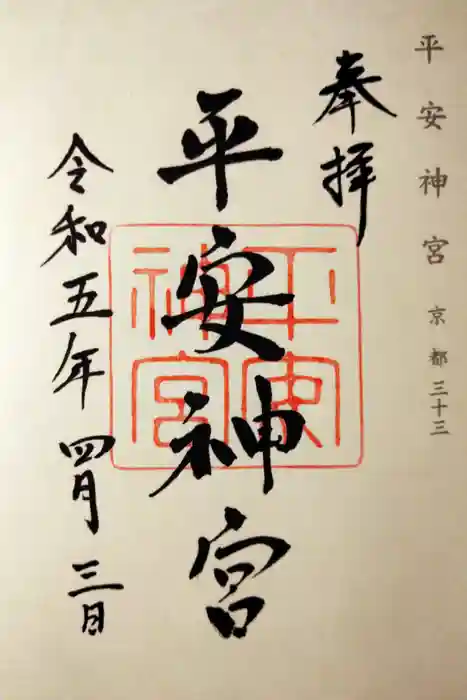 平安神宮 京都三十三
奉拝
平安神宮
平安
神宮
令和五年四月三日